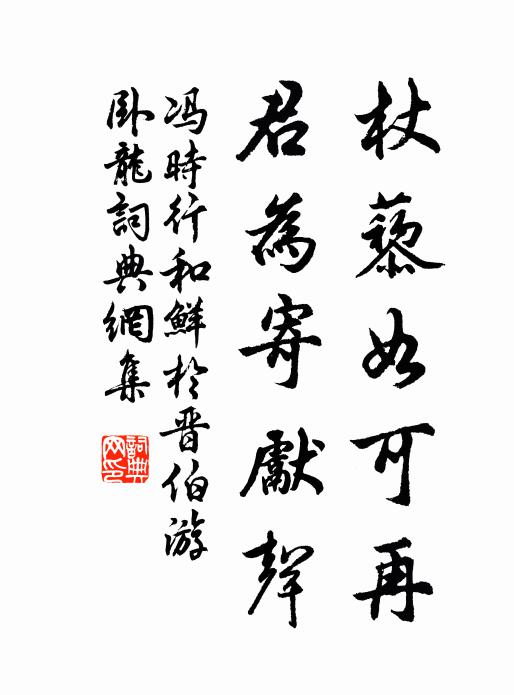 杖藜如可再
君為寄獻聲
冯時行和鮮於晋伯游
卧龍詞典網集
詞典
网印